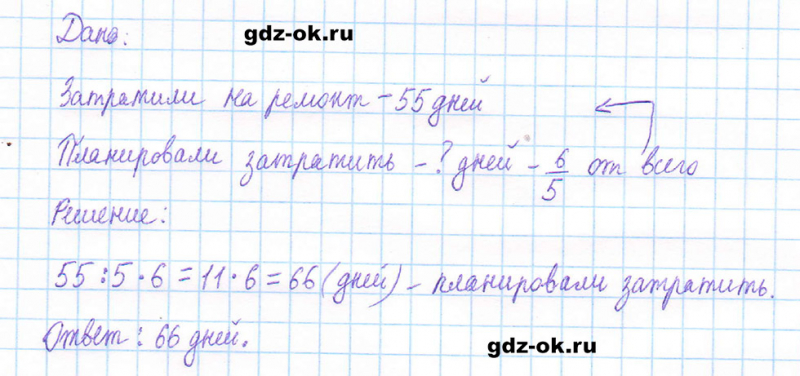 Дано:
gdz-ok.ru
Затратили на ремонт - 55 дней
Планировали затратить - ? дней - 6/5 от всего
Решение:
55 : 5 · 6 = 11 · 6 = 66 (дней) - планировали затратить.
Ответ: 66 дней.
gdz-ok.ru